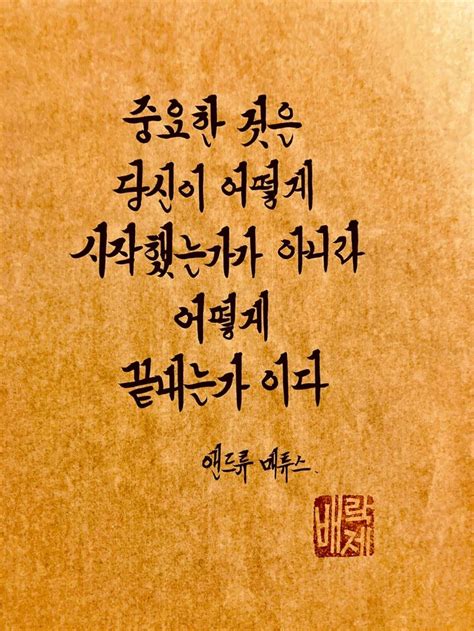 중요한 것은
당신이 어떻게
시작했는가가 아니라
어떻게
끝내는가 이다
앤드류 매튜스.
배락제